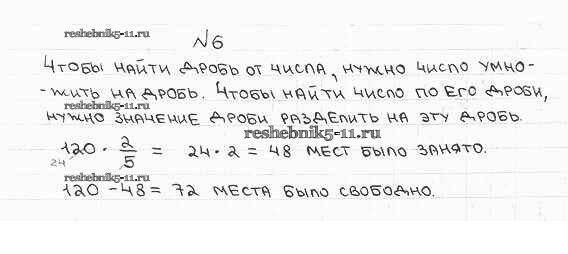 reshebnik5-11.ru
№6
Чтобы найти дробь от числа, нужно число умно-
-жить на дробь. Чтобы найти число по его дроби,
reshebnik5-11.ru
нужно значение дроби разделить на эту дробь.
reshebnik5-11.ru
120 · 2/5 = 24 · 2 = 48 мест было занято.
24
reshebnik5-11.ru
120 - 48 = 72 места было свободно.